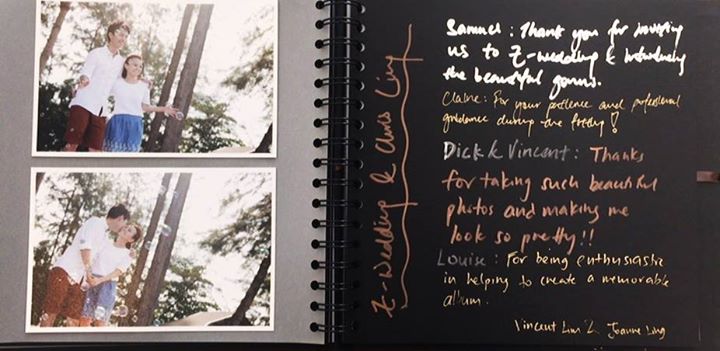 Z-Wedding & Chris Ling
Samuel : Thank you for inviting
us to Z-wedding & introducing
the beautiful gowns.
Claire: For your patience and professional
guidance during the fitting!
Dick & Vincent : Thanks
for taking such beautiful
photos and making me
look so pretty!!
Louise : For being enthusiastic
in helping to create a memorable
album.
Vincent Lim & Joanne Ling